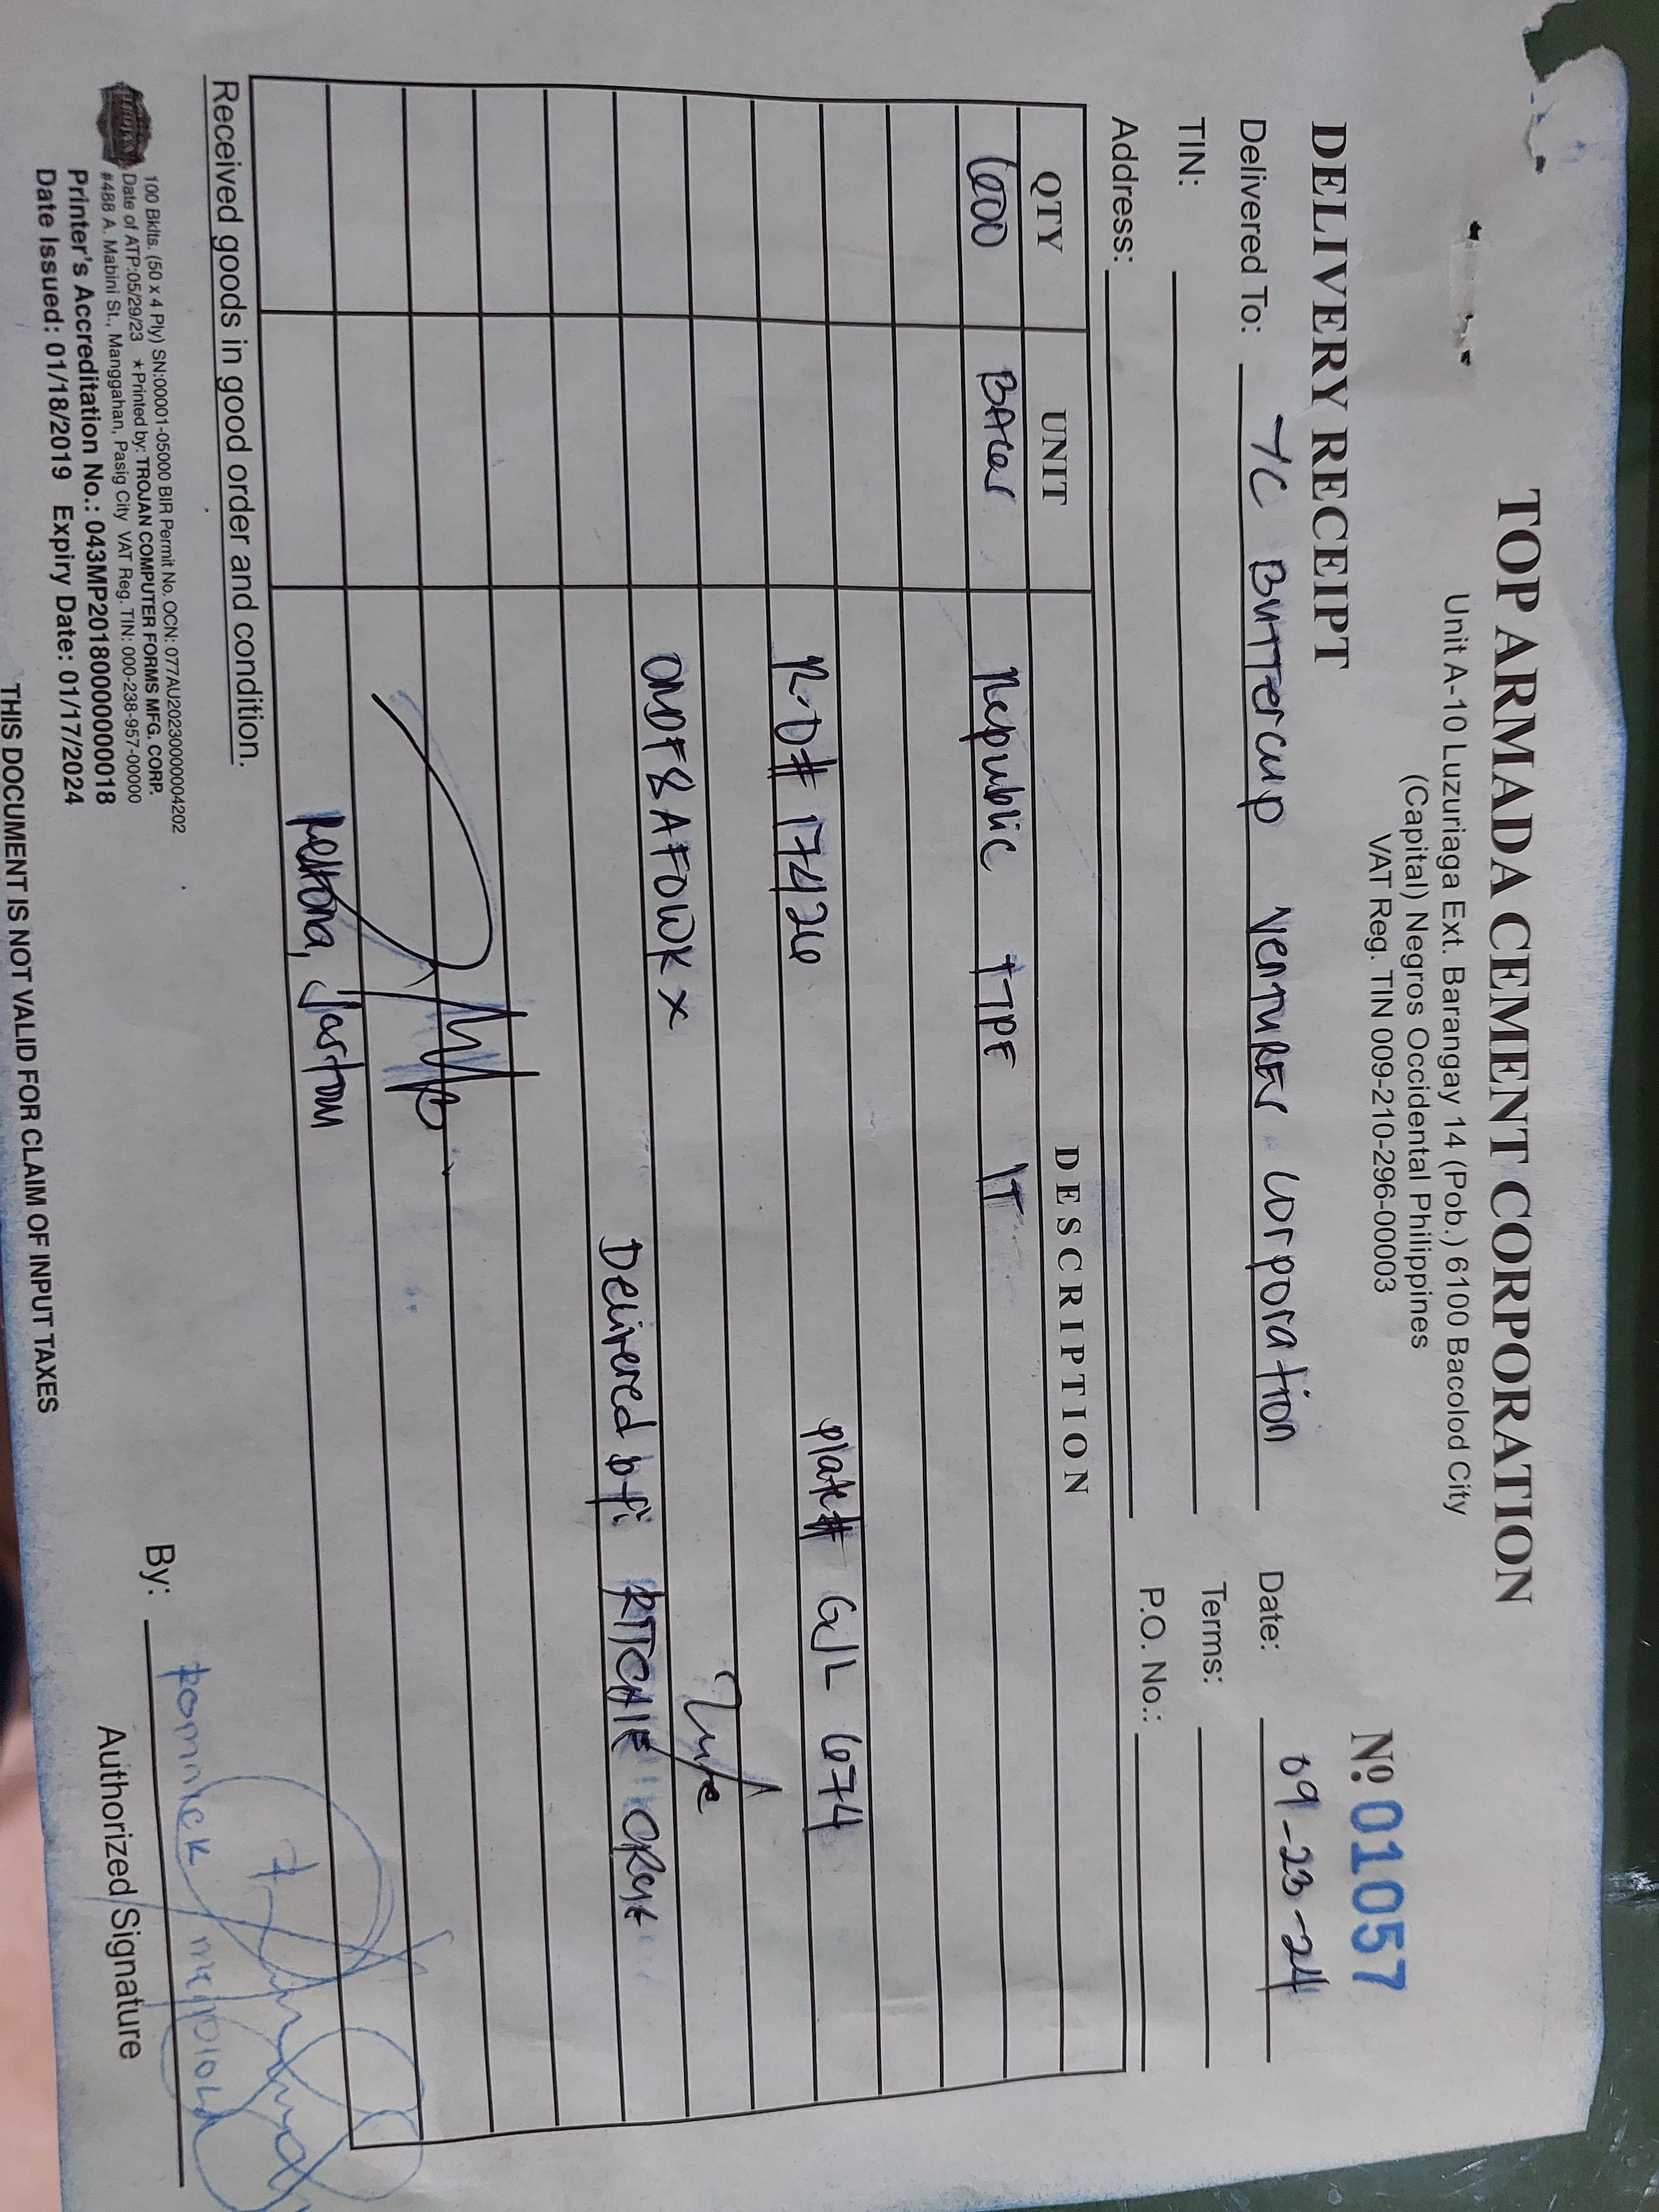 TOP ARMADA CEMENT CORPORATION
Unit A-10 Luzuriaga Ext. Barangay 14 (Pob.) 6100 Bacolod City
(Capital) Negros Occidental Philippines
VAT Reg. TIN 009-210-296-00003
DELIVERY RECEIPT
Nº 011057
Delivered To: 7C Buttercup Ventures Corporation
Date: 09-23-24
TIN:
Terms:
Address:
P.O. No.:
QTY UNIT DESCRIPTION
600 BAGS Republic TYPE 1T
R.D# 17426 plate# GJL 674
ONDF8AFOWKX
Delivered by: RITCHIE
Jaston
Received goods in good order and condition.
By:
Authorized Signature
TROJAN
100 Bklts. (50 x 4 Ply) SN:00001-05000 BIR Permit No. OCN: 077AU20230000004202
Date of ATP:05/29/23 ★Printed by: TROJAN COMPUTER FORMS MFG. CORP.
#488 A. Mabini St., Manggahan, Pasig City VAT Reg. TIN: 000-238-957-00000
Printer's Accreditation No.: 043MP20180000000018
Date Issued: 01/18/2019 Expiry Date: 01/17/2024
THIS DOCUMENT IS NOT VALID FOR CLAIM OF INPUT TAXES